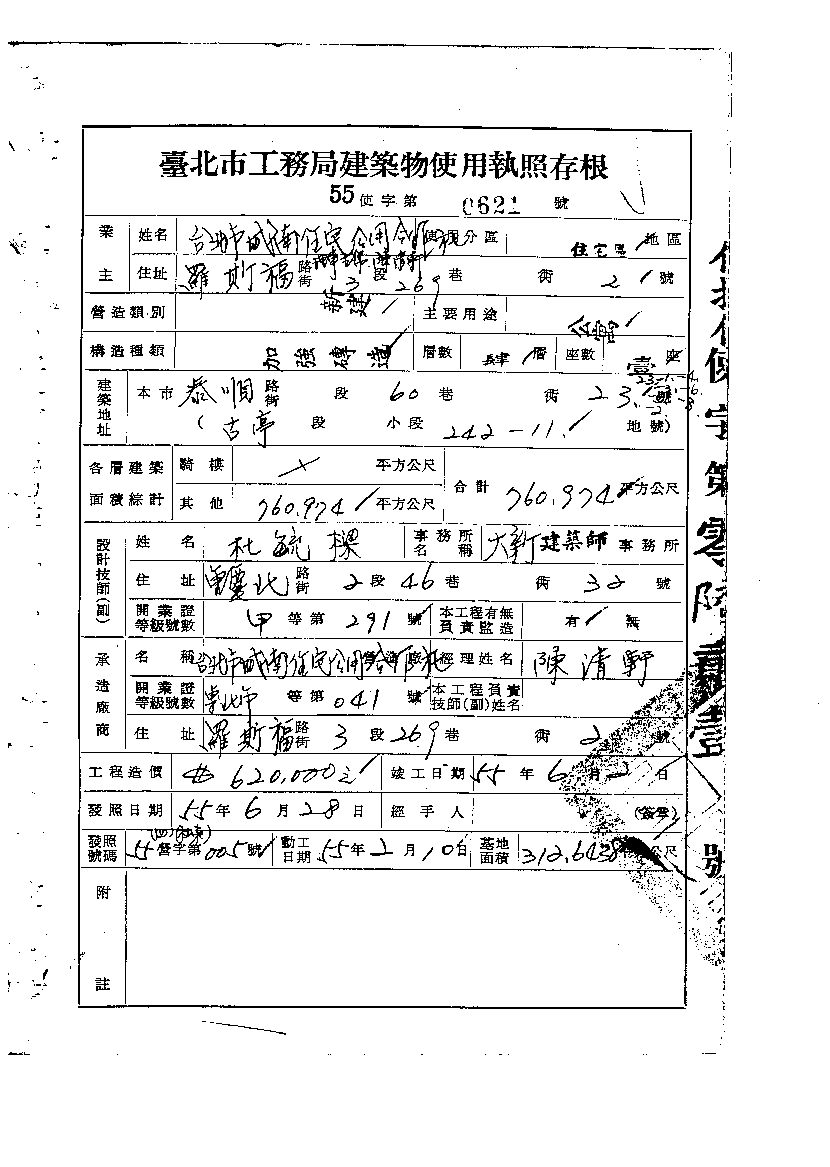 臺北市工務局建築物使用執照存根
55使字第 0621 號
業主 姓名 台北市城南住宅公用合 分區 住宅區 地區
住址 羅斯福 路街 3 段 269 巷 衖 2 號
營造類別 新建 主要用途
構造種類 加強磚造 層數 肆 層 座數 壹 座
建築地址 本市 泰順 路街 段 60 巷 衖 23 號
( 古亭 段 小段 242-11 地號)
各層建築面積綜計 騎樓 平方公尺 合計 760.974 平方公尺
其他 760.974 平方公尺
設計技師(副) 姓名 杜毓樑 事務所名稱 大新建築師 事務所
住址 重慶北 路街 2 段 46 巷 衖 32 號
開業證等級號數 甲 等第 291 號 本工程有無負責監造 有 無
承造廠商 名稱 台北市城南住宅公用合 經理姓名 陳清軒
開業證等級號數 等第 041 號 本工程負責技師(副)姓名
住址 羅斯福 路街 3 段 269 巷 衖 2 號
工程造價 620,000元 竣工日期 55 年 6 月 2 日
發照日期 55 年 6 月 28 日 經手人 (簽章)
發照號碼 55 營字第 005 號 動工日期 55 年 2 月 10 日 基地面積 312.6438 公尺
附註
使字第零陸貳壹號